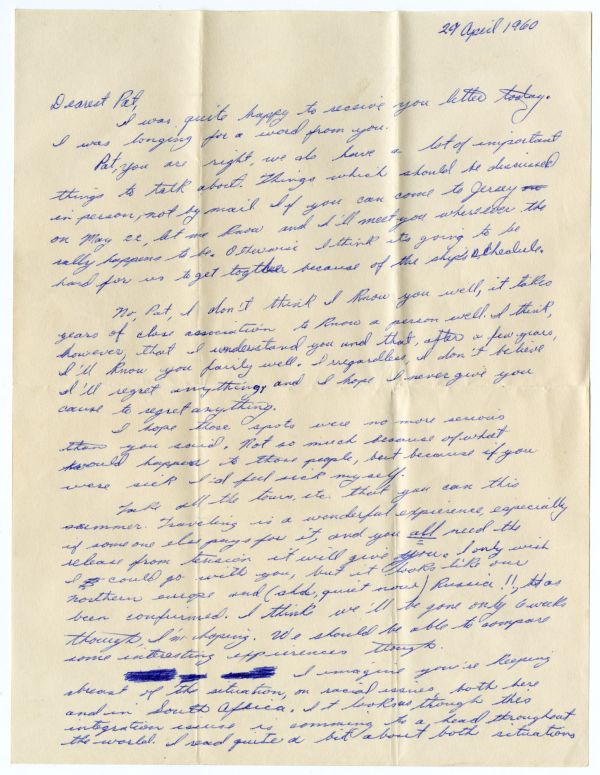 29 April 1960
Dearest Pat,
I was quite happy to receive you letter today.
I was longing for a word from you.
Pat, you are right, we do have a lot of important
things to talk about. Things which should be discussed
in person, not by mail. If you can come to Jersay
on May 22, let me know and I'll meet you wherever the
rally happens to be. Otherwise I think its going to be
hard for us to get together because of the ship's schedule.
No, Pat, I don't think I know you well, it takes
years of close association to know a person well. I think,
however, that I understand you and that, after a few years,
I'll know you fairly well. Irregardless, I don't believe
I'll regret anything, and I hope I never give you
cause to regret anything.
I hope those spots were no more serious
than you said. Not so much because of what
would happen to those people, but because if you
were sick I'd feel sick myself.
Take all the tours, etc. that you can this
summer. Traveling is a wonderful expierience, especially
if someone else pays for it, and you all need the
release from tension it will give you. I only wish
I could go with you, but it looks like our
northern europe and ( quiet now) Russia!!, has
been confirmed. I think we'll be gone only 6 weeks
though, I'm hoping. We should be able to compare
some interesting expieriences though.
I imagine you're keeping
abreast of the situation, on racial issues, both here
and in South Africa. It looks as though this
integration issue is comming to a head throughout
the world. I read quite a bit about both situations